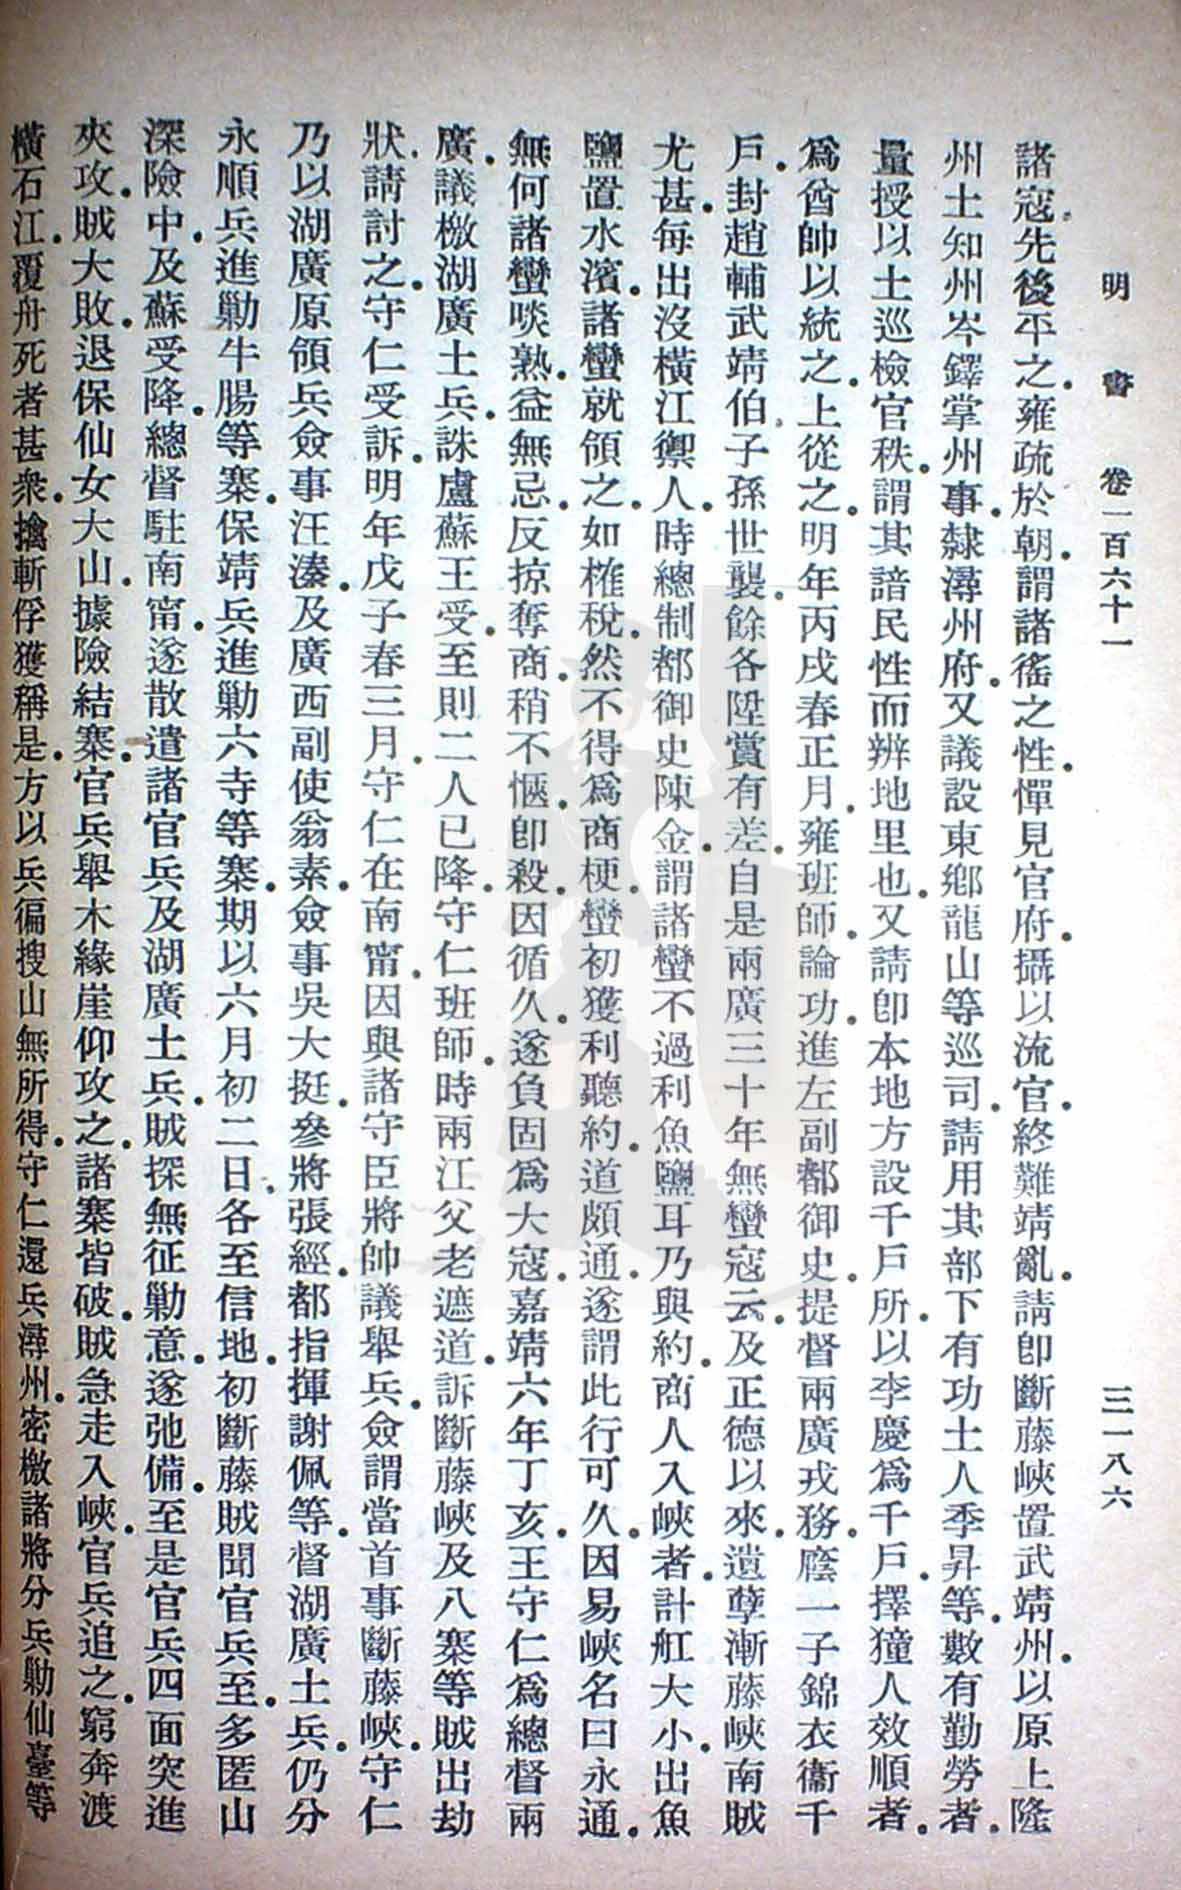 明書 卷一百六十一 三一八六
諸寇先後平之.雍疏於朝.謂諸徭之性.憚見官府.攝以流官.終難靖亂.請卽斷藤峽置武靖州.以原上隆
州土知州岑鐸掌州事.隸潯州府.又議設東鄉龍山等巡司.請用其部下有功土人季昇等.數有勤勞者.
量授以土巡檢官秩.謂其諳民性而辨地里也.又請卽本地方設千戶所.以李慶爲千戶.擇獞人效順者.
爲酋帥以統之.上從之.明年丙戌春正月.雍班師.論功進左副都御史.提督兩廣戎務.廕一子錦衣衞千
戶.封趙輔武靖伯.子孫世襲.餘各陞賞有差.自是兩廣三十年無蠻寇云.及正德以來.遺孽漸藤峽南賊
尤甚.每出沒橫江禦人.時總制都御史陳金.謂諸蠻不過利魚鹽耳.乃與約.商人入峽者.計舡大小.出魚
鹽置水濱.諸蠻就領之.如榷稅.然不得爲商梗.蠻初獲利聽約.道頗通.遂謂此行可久.因易峽名曰永通.
無何諸蠻啖熟.益無忌.反掠奪.商稍不愜.卽殺.因循久.遂負固爲大寇.嘉靖六年丁亥.王守仁爲總督兩
廣.議檄湖廣土兵.誅盧蘇王受.至則二人已降.守仁班師.時兩江父老遮道.訴斷藤峽及八寨等賊出劫
狀.請討之.守仁受訴.明年戊子春三月.守仁在南甯.因與諸守臣將帥議舉兵.僉謂當首事斷藤峽.守仁
乃以湖廣原領兵僉事汪溱.及廣西副使翁素.僉事吳大挺.參將張經.都指揮謝佩等.督湖廣土兵.仍分
永順兵進勦牛腸等寨.保靖兵進勦六寺等寨.期以六月初二日.各至信地.初斷藤賊聞官兵至.多匿山
深險中.及蘇受降.總督駐南甯.遂散遣諸官兵及湖廣土兵.賊探無征勦意.遂弛備.至是官兵四面突進
夾攻.賊大敗.退保仙女大山.據險結寨.官兵舉木緣崖仰攻之.諸寨皆破.賊急走入峽.官兵追之.窮奔渡
橫石江.覆舟死者甚衆.擒斬俘獲稱是.方以兵徧搜山無所得.守仁還兵潯州.密檄諸將分兵勦仙臺等